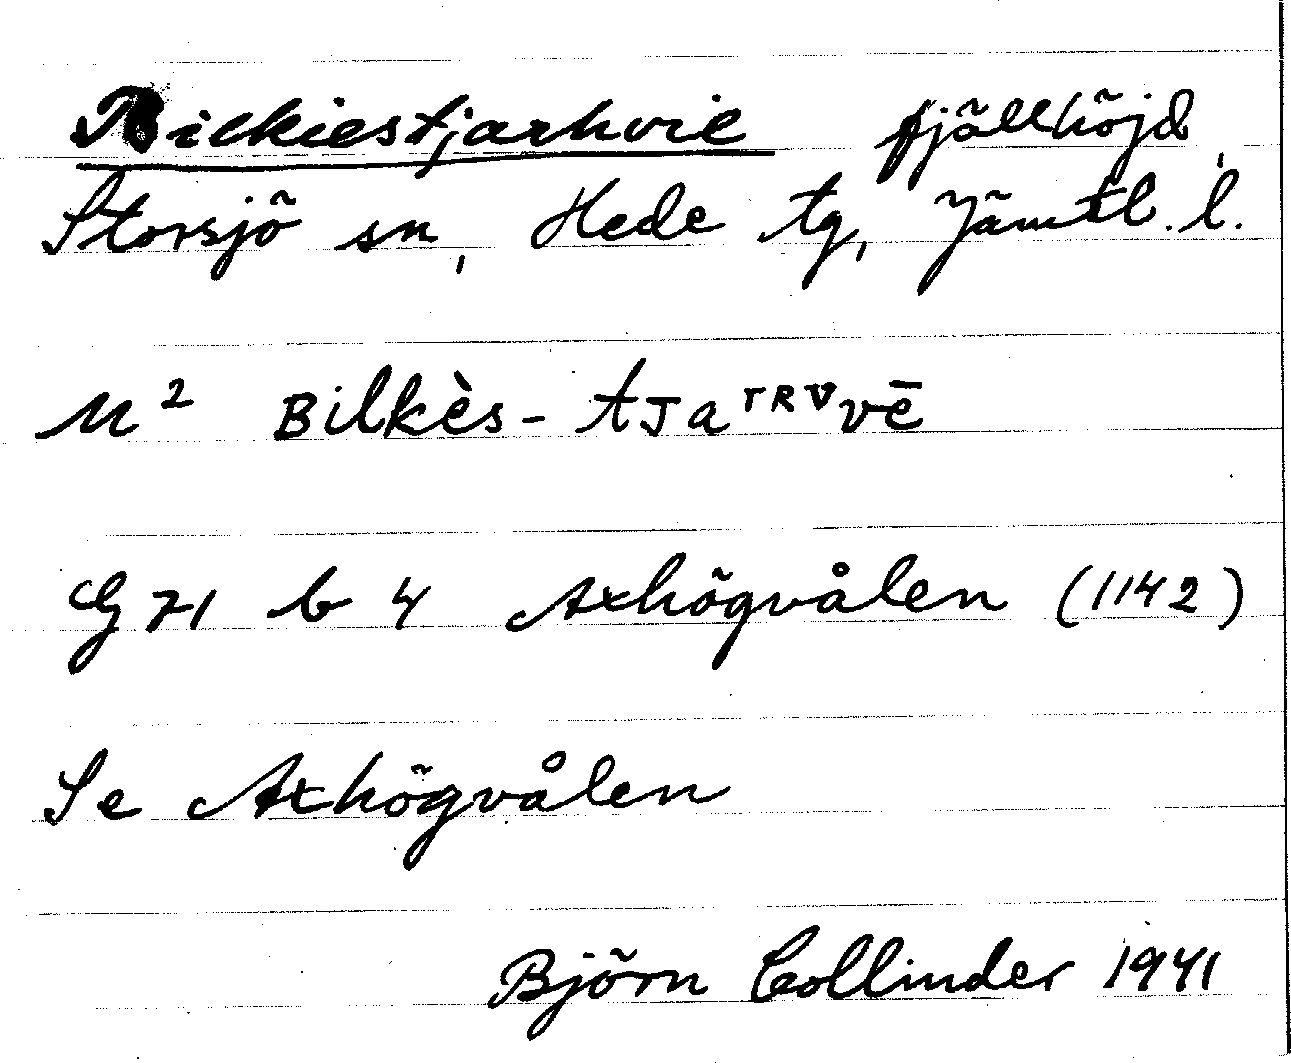 Bilkiestjarhvie fjällhöjd,
Storsjö sn, Hede tg, Jämtl. l.
M² Bilkès-tJaʳᴿᵛvē
G 71 b 4 Axhögvålen (1142)
Se Axhögvålen
Björn Collinder 1941